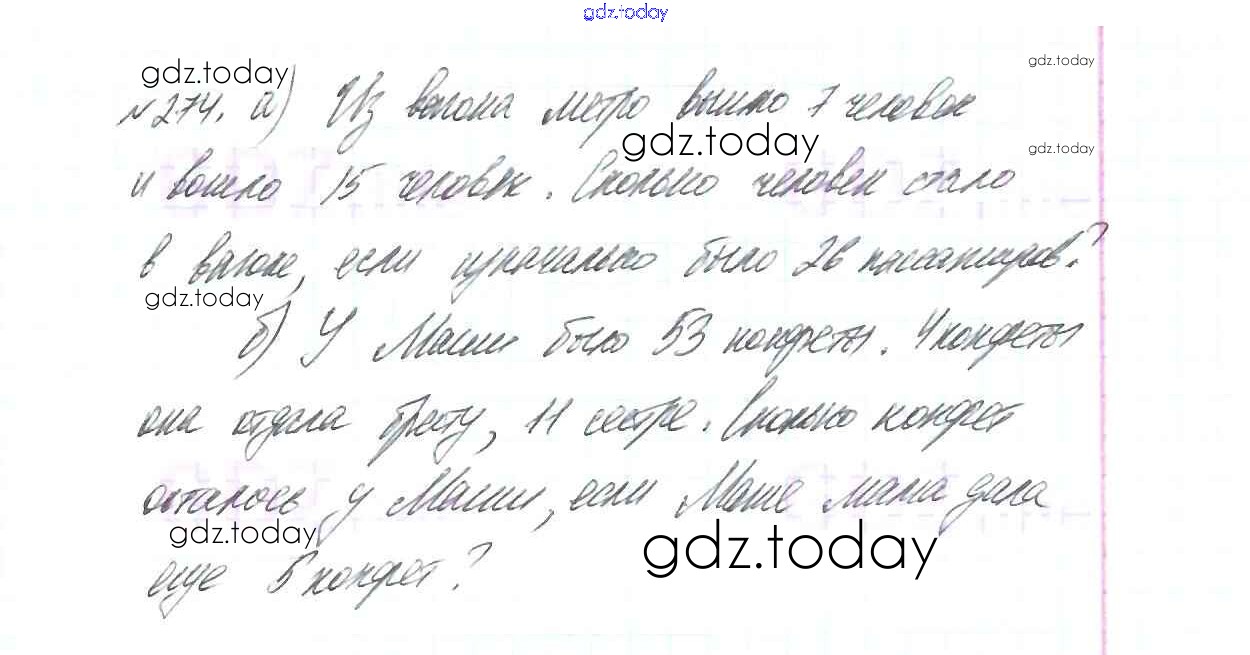 gdz.today
gdz.today
gdz.today
№274. а) Из вагона метро вышло 7 человек
gdz.today
gdz.today
и вошло 15 человек. Сколько человек стало
в вагоне, если изначально было 26 пассажиров?
gdz.today
б) У Маши было 53 конфеты. 4 конфеты
она отдала брату, 11 сестре. Сколько конфет
осталось у Маши, если Маше мама дала
gdz.today
gdz.today
еще 5 конфет?